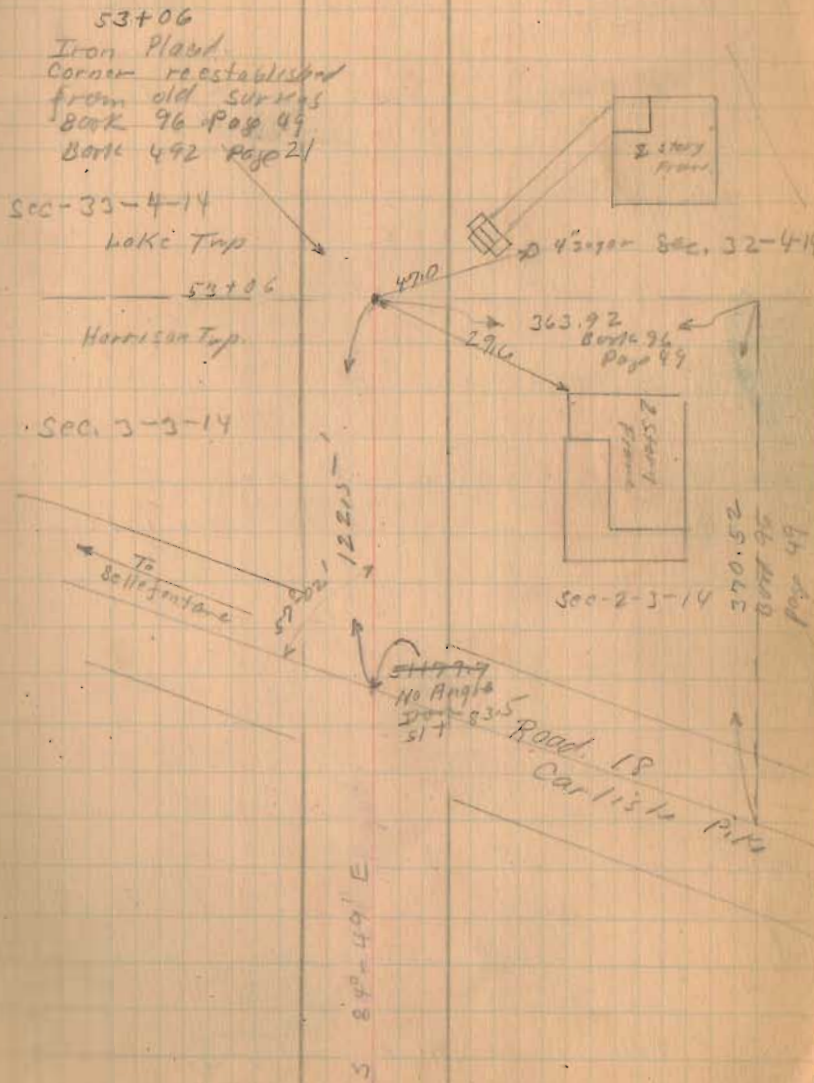 53+06
Iron Placed
Corner reestablished
from old surveys
Book 96 Page 49
Book 492 Page 21
Sec-33-4-14
Lake Twp
53+06
Harrison Twp.
Sec. 3-3-14
2 Story
Frame
4" sugar
Sec. 32-4-14
47.0
363.92
Book 96
Page 49
29.6
2 Story
Frame
122.5'
Sec-2-3-14
370.52
Book 96
Page 49
To
Bellefontane
57°-02'
No Angle
51+83.5
Road 18
Carlisle Pike
S 84°-49' E